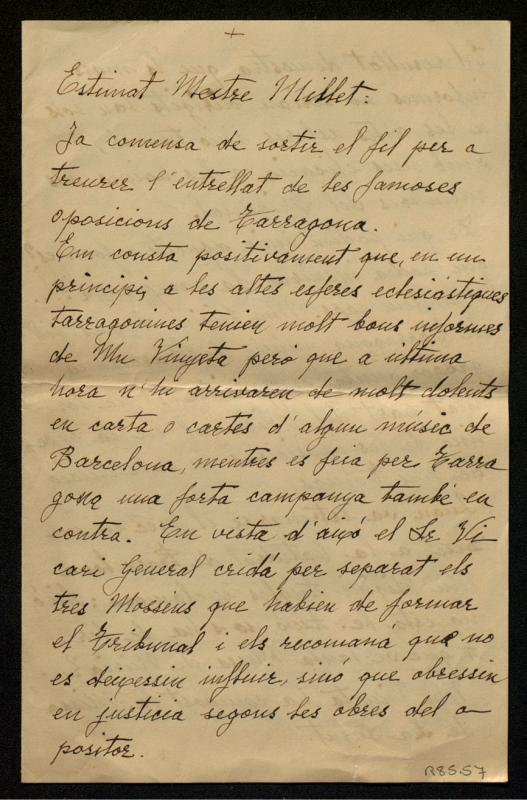 +
Estimat Mestre Millet:
Ja comensa de sortir el fil per a
treurer l'entrellat de les famoses
oposicions de Tarragona.
Em consta positivament que, en un
principi, a les altes esferes eclesiástiques
tarragonines tenien molt bons informes
de Mn Vinyeta però que a última
hora n'hi arrivaren de molt dolents
en carta o cartes d'algun músic de
Barcelona, mentres es feia per Tarra
gona una forta campanya també en
contra. En vista d'aixó el Sr Vi
cari General cridá per separat els
tres Mossens que habien de formar
el Tribunal i els recomaná que no
es deixessin influir, sinó que obressin
en justicia segons les obres del o-
positor.
R85.57